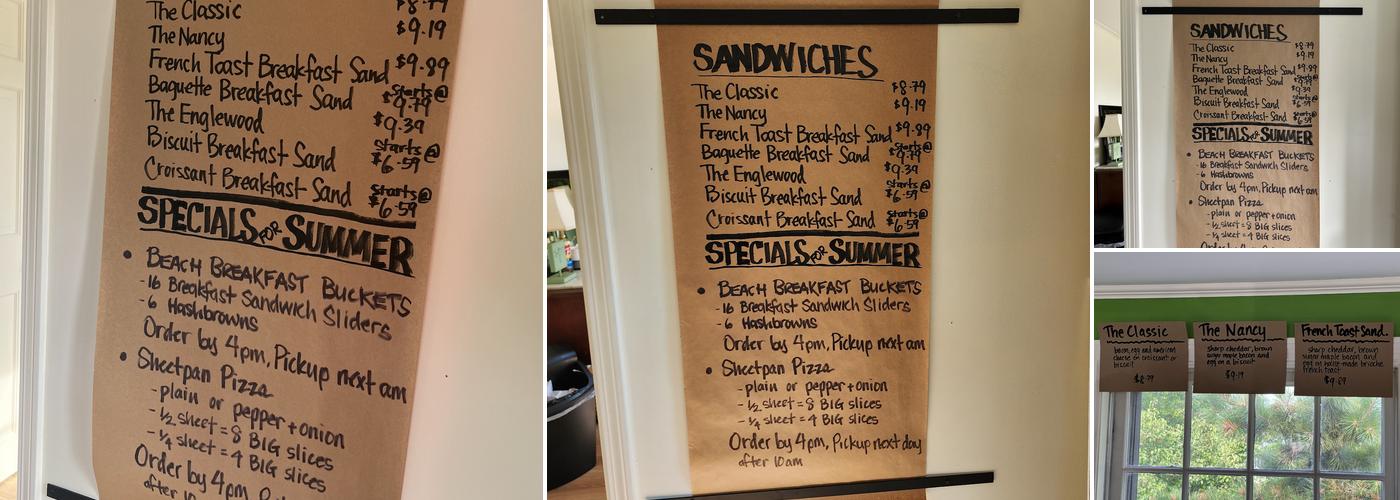 The Classic $8.79
The Nancy $9.19
French Toast Breakfast Sand $9.89
Baguette Breakfast Sand Starts@ $9.79
The Englewood $9.39
Biscuit Breakfast Sand Starts@ $6.59
Croissant Breakfast Sand Starts@ $6.59
SPECIALS FOR SUMMER
• BEACH BREAKFAST BUCKETS
-16 Breakfast Sandwich Sliders
-6 Hashbrowns
Order by 4pm, Pickup next am
• Sheetpan Pizza
-plain or pepper+onion
-1/2 sheet = 8 BIG slices
-1/4 sheet = 4 BIG slices
Order by 4pm
after 10
SANDWICHES
The Classic $8.79
The Nancy $9.19
French Toast Breakfast Sand $9.89
Baguette Breakfast Sand Starts@ $9.79
The Englewood $9.39
Biscuit Breakfast Sand Starts@ $6.59
Croissant Breakfast Sand Starts@ $6.59
SPECIALS FOR SUMMER
• BEACH BREAKFAST BUCKETS
-16 Breakfast Sandwich Sliders
-6 Hashbrowns
Order by 4pm, Pickup next am
• Sheetpan Pizza
-plain or pepper+onion
-1/2 sheet = 8 BIG slices
-1/4 sheet = 4 BIG slices
Order by 4pm, Pickup next day
after 10am
SANDWICHES
The Classic $8.79
The Nancy $9.19
French Toast Breakfast Sand $9.89
Baguette Breakfast Sand Starts@ $9.79
The Englewood $9.39
Biscuit Breakfast Sand Starts@ $6.59
Croissant Breakfast Sand Starts@ $6.59
SPECIALS FOR SUMMER
• BEACH BREAKFAST BUCKETS
-16 Breakfast Sandwich Sliders
-6 Hashbrowns
Order by 4pm, Pickup next am
• Sheetpan Pizza
-plain or pepper+onion
-1/2 sheet = 8 BIG slices
-1/4 sheet = 4 BIG slices
The Classic
bacon, egg and american
cheese on croissant or
biscuit
$8.79
The Nancy
sharp cheddar, brown
sugar maple bacon and
egg on a biscuit
$9.19
French Toast Sand.
sharp cheddar, brown
sugar maple bacon and
egg on house-made brioche
french toast
$9.89